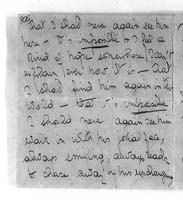 that I shall never again see him
here - It's impossible - I feel a
kind of hope somewhere. I can't
explain even how it is - that
I shall find him again in the
world - that it's impossible
I should never again see him
walk in with his
always smiling, always ready
to chase away in his